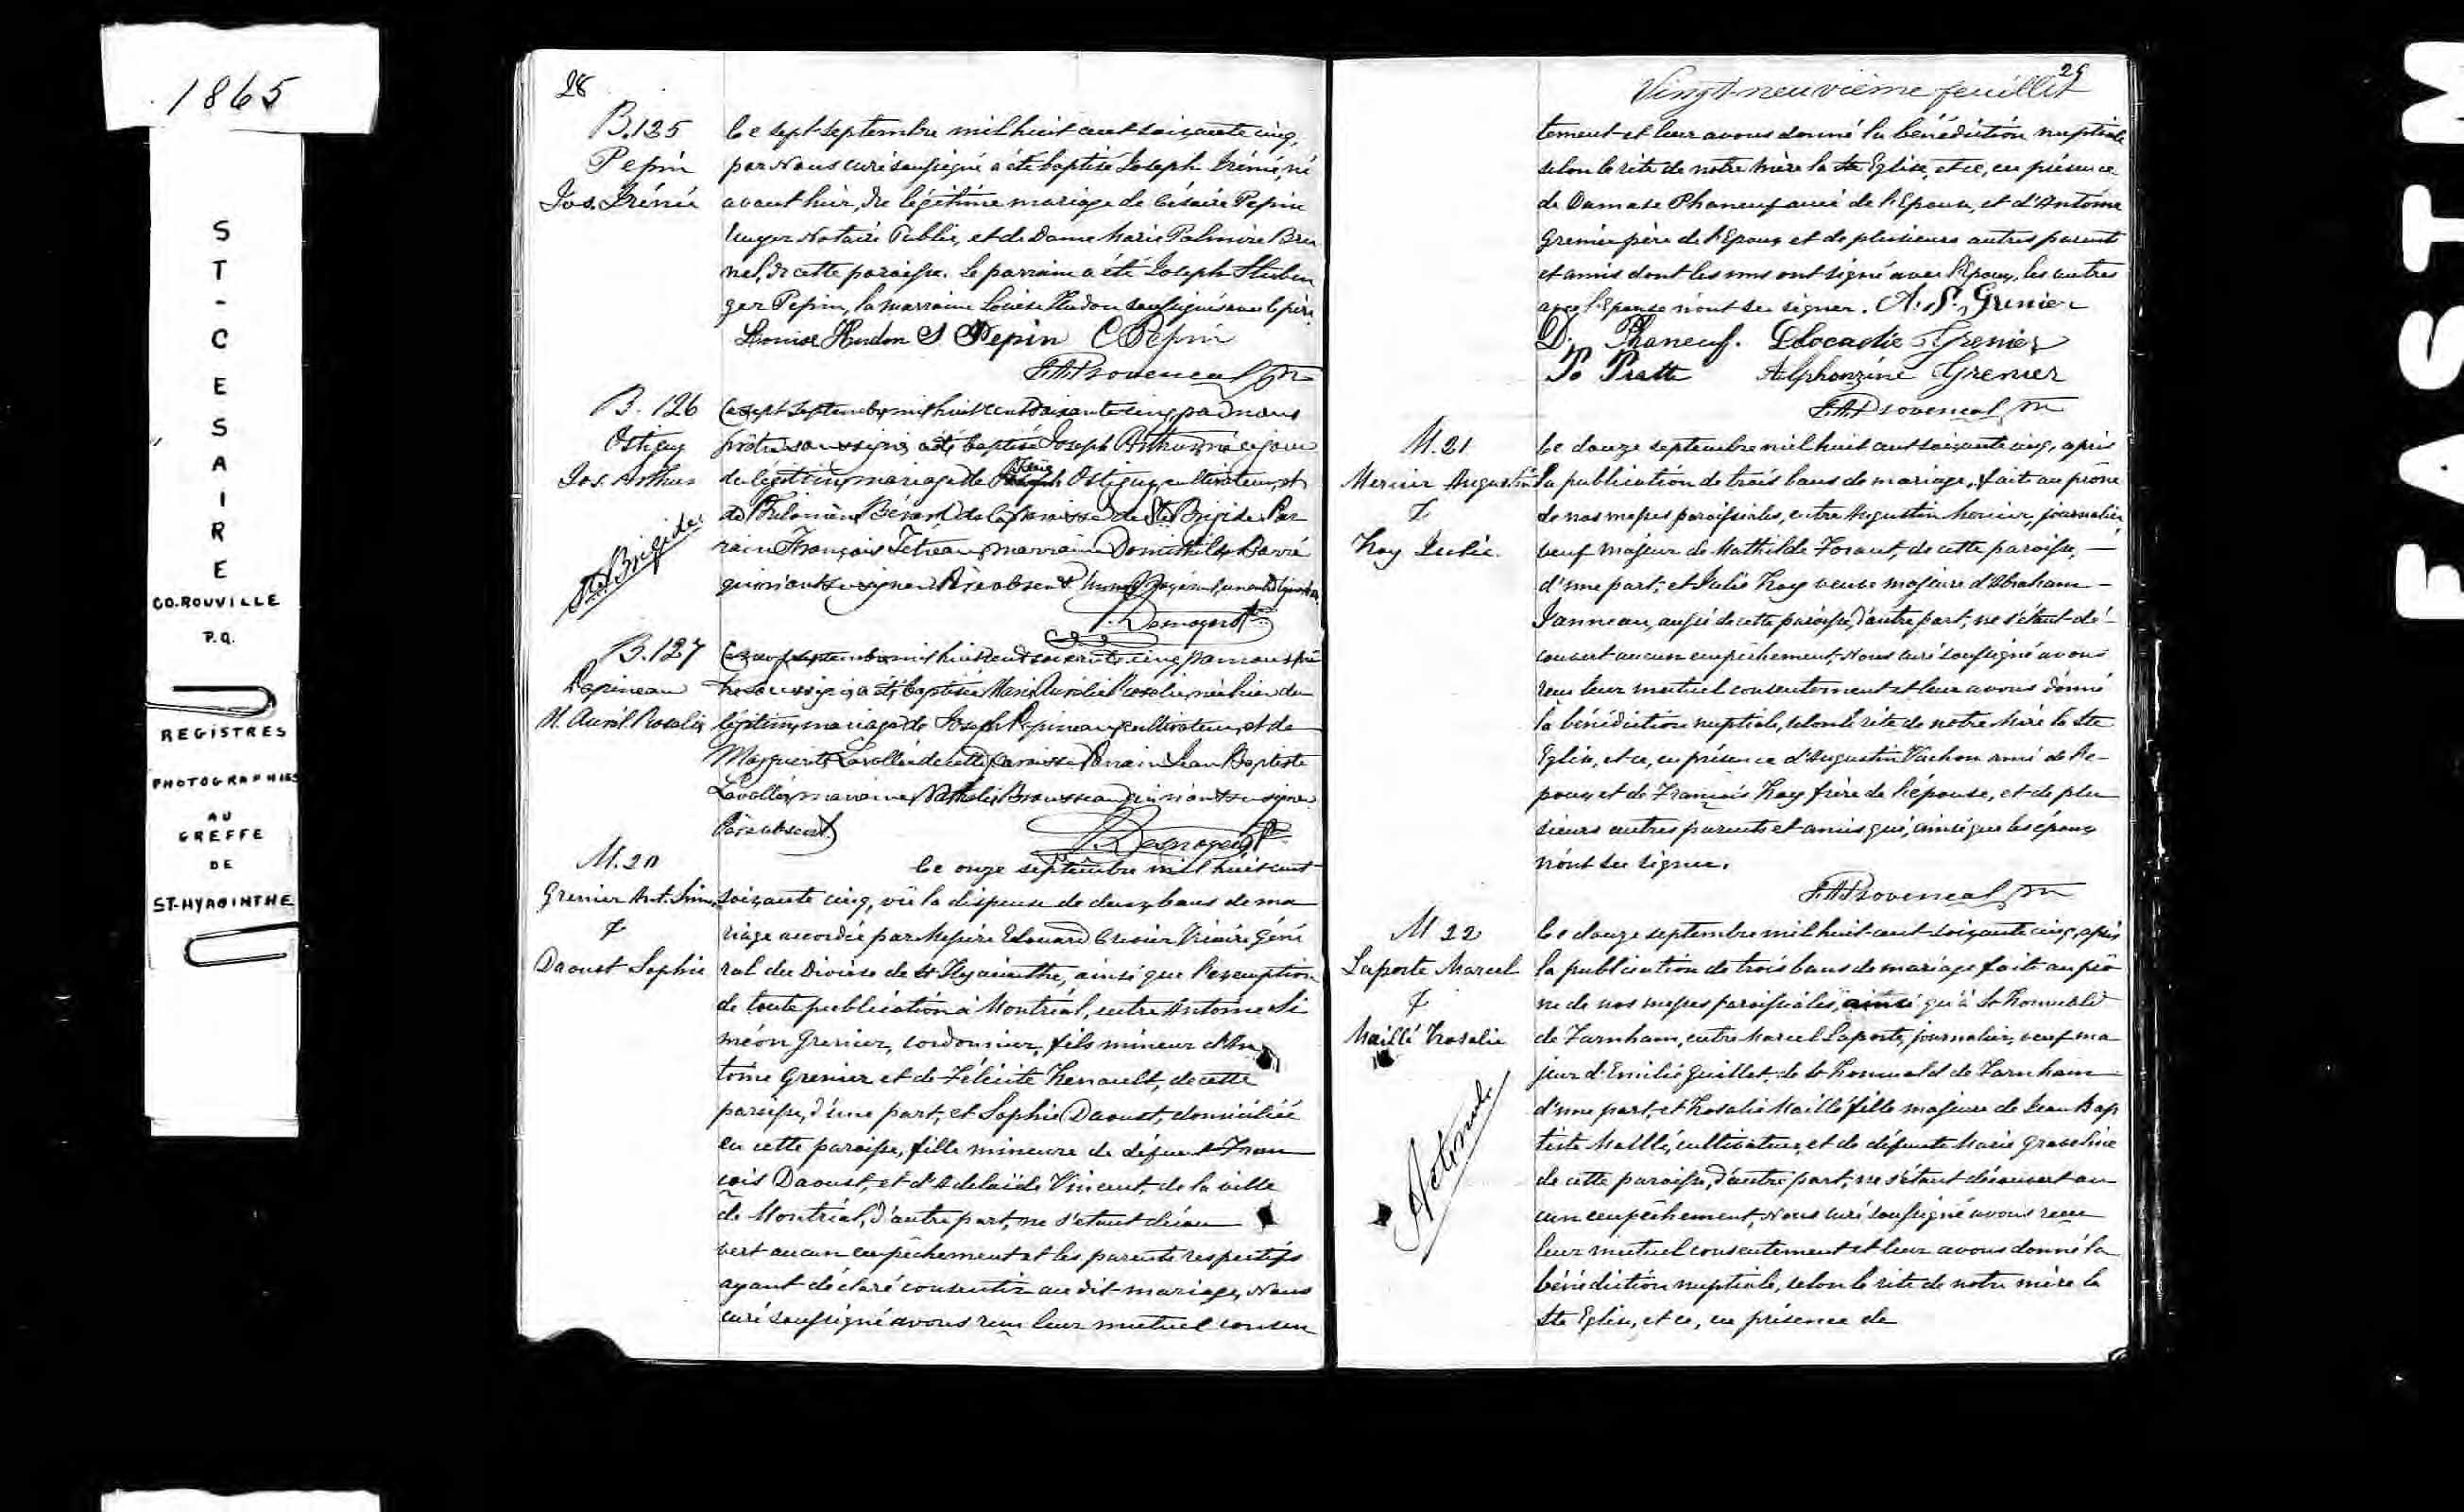 1865
ST-CESAIRE
CO. ROUVILLE
P.Q.
REGISTRES
PHOTOGRAPHIES
AU
GREFFE
DE
ST-HYACINTHE
28
B.125
Pepin
Jos. Irénée
Le sept septembre mil huit cent soixante cinq,
par Nous curé soussigné a été baptisé Joseph Irénée, né
avant hier, du légitime mariage de Césaire Pepin
Notaire Public, et de Dame Marie Palmire Bru
nel, de cette paroisse. Le parrain a été Joseph
ger Pepin, la marraine Louise Hudon soussignés avec le père.
Louise Hudon S Pepin C Pepin
J.A. Provencal Ptre
B. 126
Ostiguy
Jos. Arthur
Ste Brigide
Ce sept septembre mil huit cent soixante cinq par nous
prêtre soussigné a été baptisé Joseph Arthur né ce jour
du légitime mariage de Ostiguy cultivateur, et
de Philomène Bérard de la paroisse de Ste Brigide. Par
rain François Tetreau, marraine Domithilde Barré
qui n'ont su signer. Père absent.
Desnoyers Ptre
B.127
Papineau
M. Aurél. Rosalie
Ce neuf septembre mil huit cent soixante cinq par nous prê
tre soussigné, a été baptisée Marie Aurélie Rosalie, née hier du
légitime mariage de Joseph Papineau, cultivateur, et de
Marguerite Lavallée de cette paroisse. Parrain Jean Baptiste
Lavallée, marraine Nathalie Brousseau qui n'ont su signer.
Père absent.
Desnoyers Ptre
M. 20
Grenier Ant. Sim.
&
Daoust Sophie
Le onze septembre mil huit cent
soixante cinq, vu la dispense de deux bans de ma
riage accordée par Messire Edouard Crevier Vicaire géné
ral du Diocèse de St Hyacinthe, ainsi que l'exemption
de toute publication à Montréal, entre Antoine Si
méon Grenier, cordonnier, fils mineur d'An
toine Grenier et de Félicité Renault, de cette
paroisse, d'une part, et Sophie Daoust, domiciliée
en cette paroisse, fille mineure de défunt Fran
çois Daoust, et d'Adelaïde Vincent, de la ville
de Montréal, d'autre part, ne s'étant décou
vert aucun empêchement et les parents respectifs
ayant déclaré consentir au dit mariage, Nous
curé soussigné avons reçu leur mutuel consen
29
Vingt-neuvième feuillet
tement et leur avons donné la bénédiction nuptiale
selon le rite de notre Mère la Ste Eglise, et ce, en présence
de Damase Phaneuf ami de l'Epouse, et d'Antoine
Grenier père de l'Epoux et de plusieurs autres parents
et amis dont les uns ont signé avec l'Epoux, les autres
avec l'Epouse n'ont su signer. A. S. Grenier
D. Phaneuf. Léocadie Grenier
Pratte Alphonzine Grenier
J.A. Provencal Ptre
M. 21
Mercier Augustin
&
Roy Julie
Le douze septembre mil huit cent soixante cinq, après
la publication de trois bans de mariage, faite au prône
de nos messes paroissiales, entre Augustin Mercier, journalier
veuf majeur de Mathilde Forant, de cette paroisse, —
d'une part, et Julie Roy veuve majeure d'Abraham —
Janneau, aussi de cette paroisse, d'autre part, ne s'étant dé-
couvert aucun empêchement, Nous curé soussigné avons
reçu leur mutuel consentement et leur avons donné
la bénédiction nuptiale, selon le rite de notre Mère la Ste
Eglise, et ce, en présence d'Augustin Vachon ami de l'e-
poux et de François Roy frère de l'épouse, et de plu
sieurs autres parents et amis qui, ainsi que les époux
n'ont su signer.
J.A. Provencal Ptre
M 22
Laporte Marcel
&
Maillé Rosalie
Acte nul
Le douze septembre mil huit cent soixante cinq, après
la publication de trois bans de mariage faite au prô
ne de nos messes paroissiales, ainsi qu'à St Romuald
de Farnham, entre Marcel Laporte, journalier, veuf ma
jeur d'Emilie Guillet, de St Romuald de Farnham
d'une part, et Rosalie Maillé fille majeure de Jean Bap
tiste Maillé, cultivateur, et de défunte Marie
de cette paroisse, d'autre part, ne s'étant découvert au
cun empêchement, Nous curé soussigné avons reçu
leur mutuel consentement et leur avons donné la
bénédiction nuptiale, selon le rite de notre mère la
Ste Eglise, et ce, en présence de
EASTM